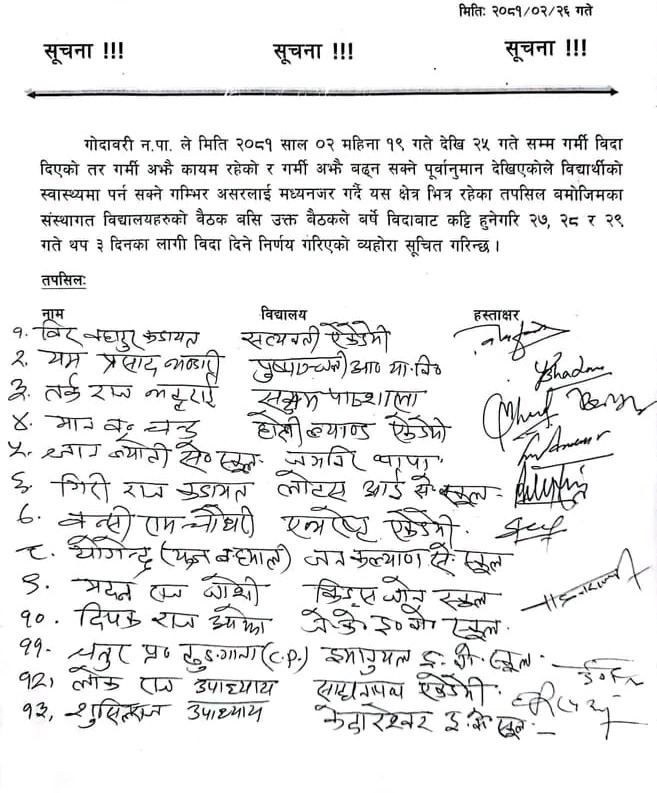 मितिः २०८१/०२/२६ गते
सूचना !!! सूचना !!! सूचना !!!
गोदावरी न.पा. ले मिति २०८१ साल ०२ महिना १९ गते देखि २५ गते सम्म गर्मी विदा
दिएको तर गर्मी अझै कायम रहेको र गर्मी अझै बढ्न सक्ने पूर्वानुमान देखिएकोले विद्यार्थीको
स्वास्थ्यमा पर्न सक्ने गम्भिर असरलाई मध्यनजर गर्दै यस क्षेत्र भित्र रहेका तपसिल बमोजिमका
संस्थागत विद्यालयहरुको बैठक बसि उक्त बैठकले बर्षे विदाबाट कट्टि हुनेगरि २७, २८ र २९
गते थप ३ दिनका लागी विदा दिने निर्णय गरिएको व्यहोरा सूचित गरिन्छ ।
तपसिलः
नाम विद्यालय हस्ताक्षर
१. विर बहादुर कडायत सत्यवती ऐकेडेमी
२. यम प्रसाद भण्डारी पुष्पाञ्जली आ० मा० वि०
३. तर्क राज भट्टराई सक्षम पाठशाला
४. मान ब० चन्द होली ल्याण्ड ऐकेडेमी
५. ज्ञान ज्योती से० स्कूल
६. गिरी राज कडायत लोटस आई से. स्कूल
७. बन्सी राम चौधरी एभरेष्ट ऐकेडेमी
८. योगेन्द्र जन कल्याण से. स्कूल
९. मदन राज जोशी किड्स जोन स्कूल
१०. दिपक राज जे. के. इ० बो० स्कूल
११. प्र० (C.P.) इमानुयल इ. बो. स्कूल
१२. लोक राज उपाध्याय ऐकेडेमी
१३. उपाध्याय केदारेश्वर इ. बो. स्कूल